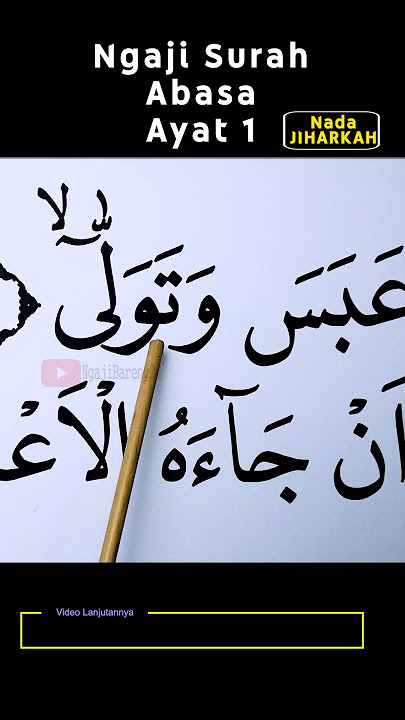 Ngaji Surah
Abasa
Ayat 1
Nada
JIHARKAH
لا
عَبَسَ وَتَوَلّٰىٓ
NgajiBaren
اَنْ جَآءَهُ الْاَعْ
Video Lanjutannya